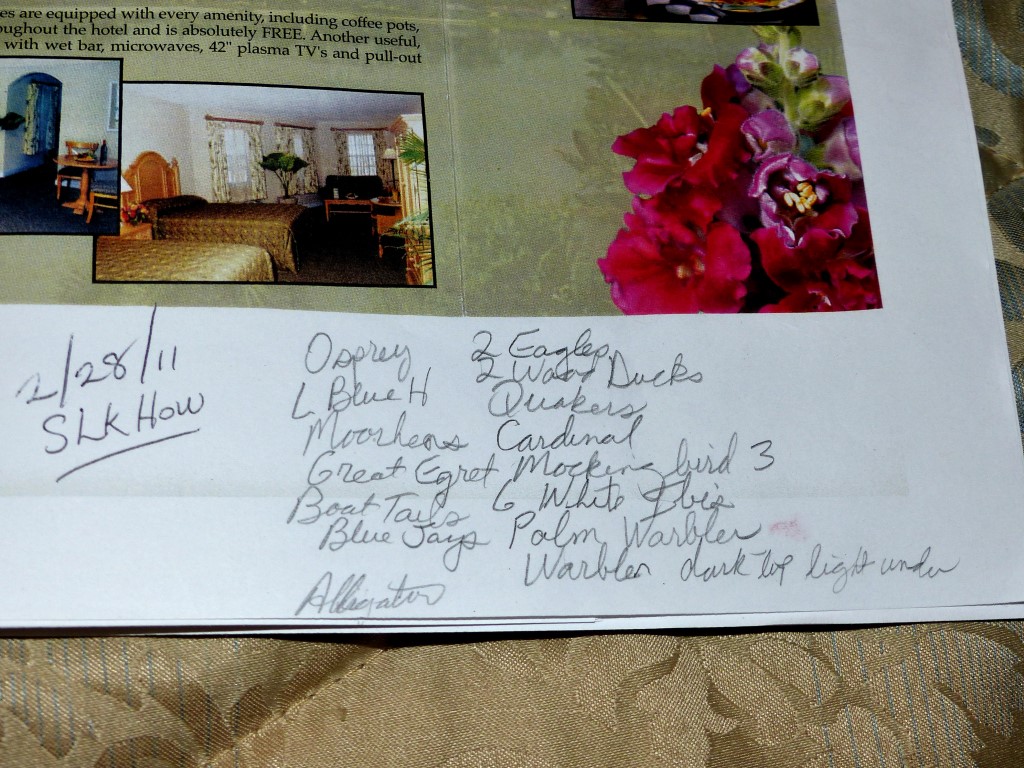 es are equipped with every amenity, including coffee pots,
oughout the hotel and is absolutely FREE. Another useful,
with wet bar, microwaves, 42" plasma TV's and pull-out
2/28/11
SLK How
Osprey 2 Eagles
L Blue H 2 Wood Ducks
Moorhens Quakers
Great Egret Cardinal
Boat Tails Mocking bird 3
Blue Jays 6 White Ibis
Palm Warbler
Warbler dark top light under
Alligator